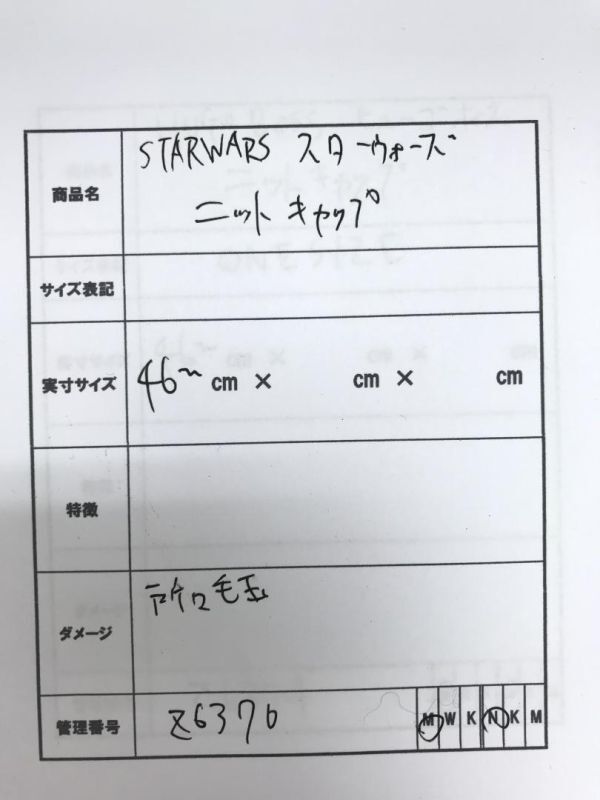 商品名 STARWARS スターウォーズ
ニット キャップ
サイズ表記
実寸サイズ 46〜 cm × cm × cm
特徴
ダメージ 所々毛玉
管理番号 Z6376 M W K N K M